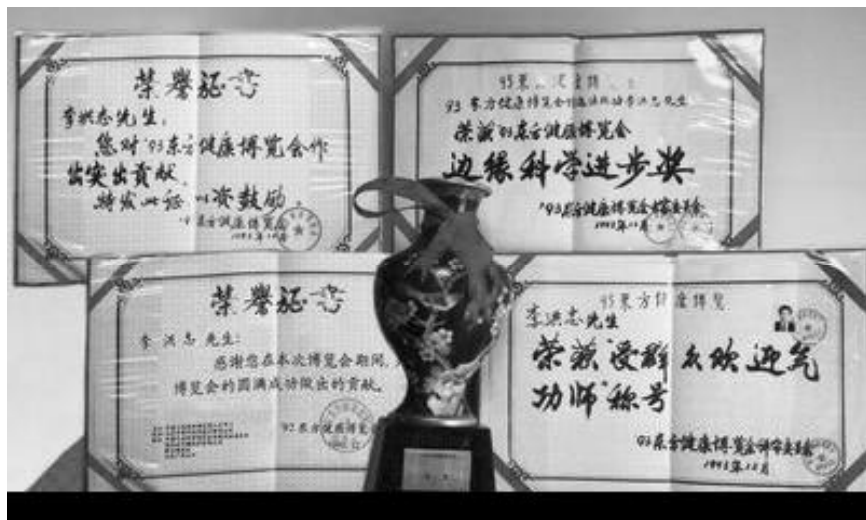 荣誉证书
李洪志先生:
您对'93东方健康博览会作
出突出贡献,
特发此证 以资鼓励。
'93东方健康博览会
1993年12月
'93东方健康博览会
荣获'93东方健康博览会
边缘科学进步奖
'93东方健康博览会
1993年12月
荣誉证书
李洪志先生:
感谢您在本次博览会期间,
博览会的圆满成功做出的贡献。
'92东方健康博览会
93东方健康博览
李洪志先生
荣获"受群众欢迎气
功师"称号
93东方健康博览会评审委员会
1993年12月